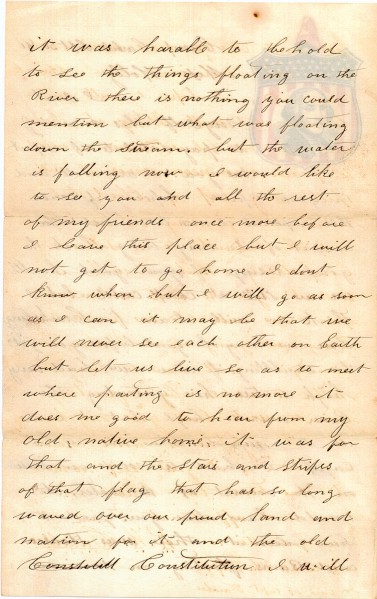 it was harable to behold
to see the things floating on the
River there is nothing you could
mention but what was floating
down the stream. but the water
is falling now I would like
to see you and all the rest
of my friends once more before
I leave this place but I will
not get to go home I dont
know when but I will go as soon
as I can it may be that we
will never see each other on Earth
but let us live so as to meet
where parting is no more it
does me good to hear from my
old native home. it was for
that and the stars and stripes
of that flag that has so long
waved over our proud land and
nation for it and the old
Constitution I will